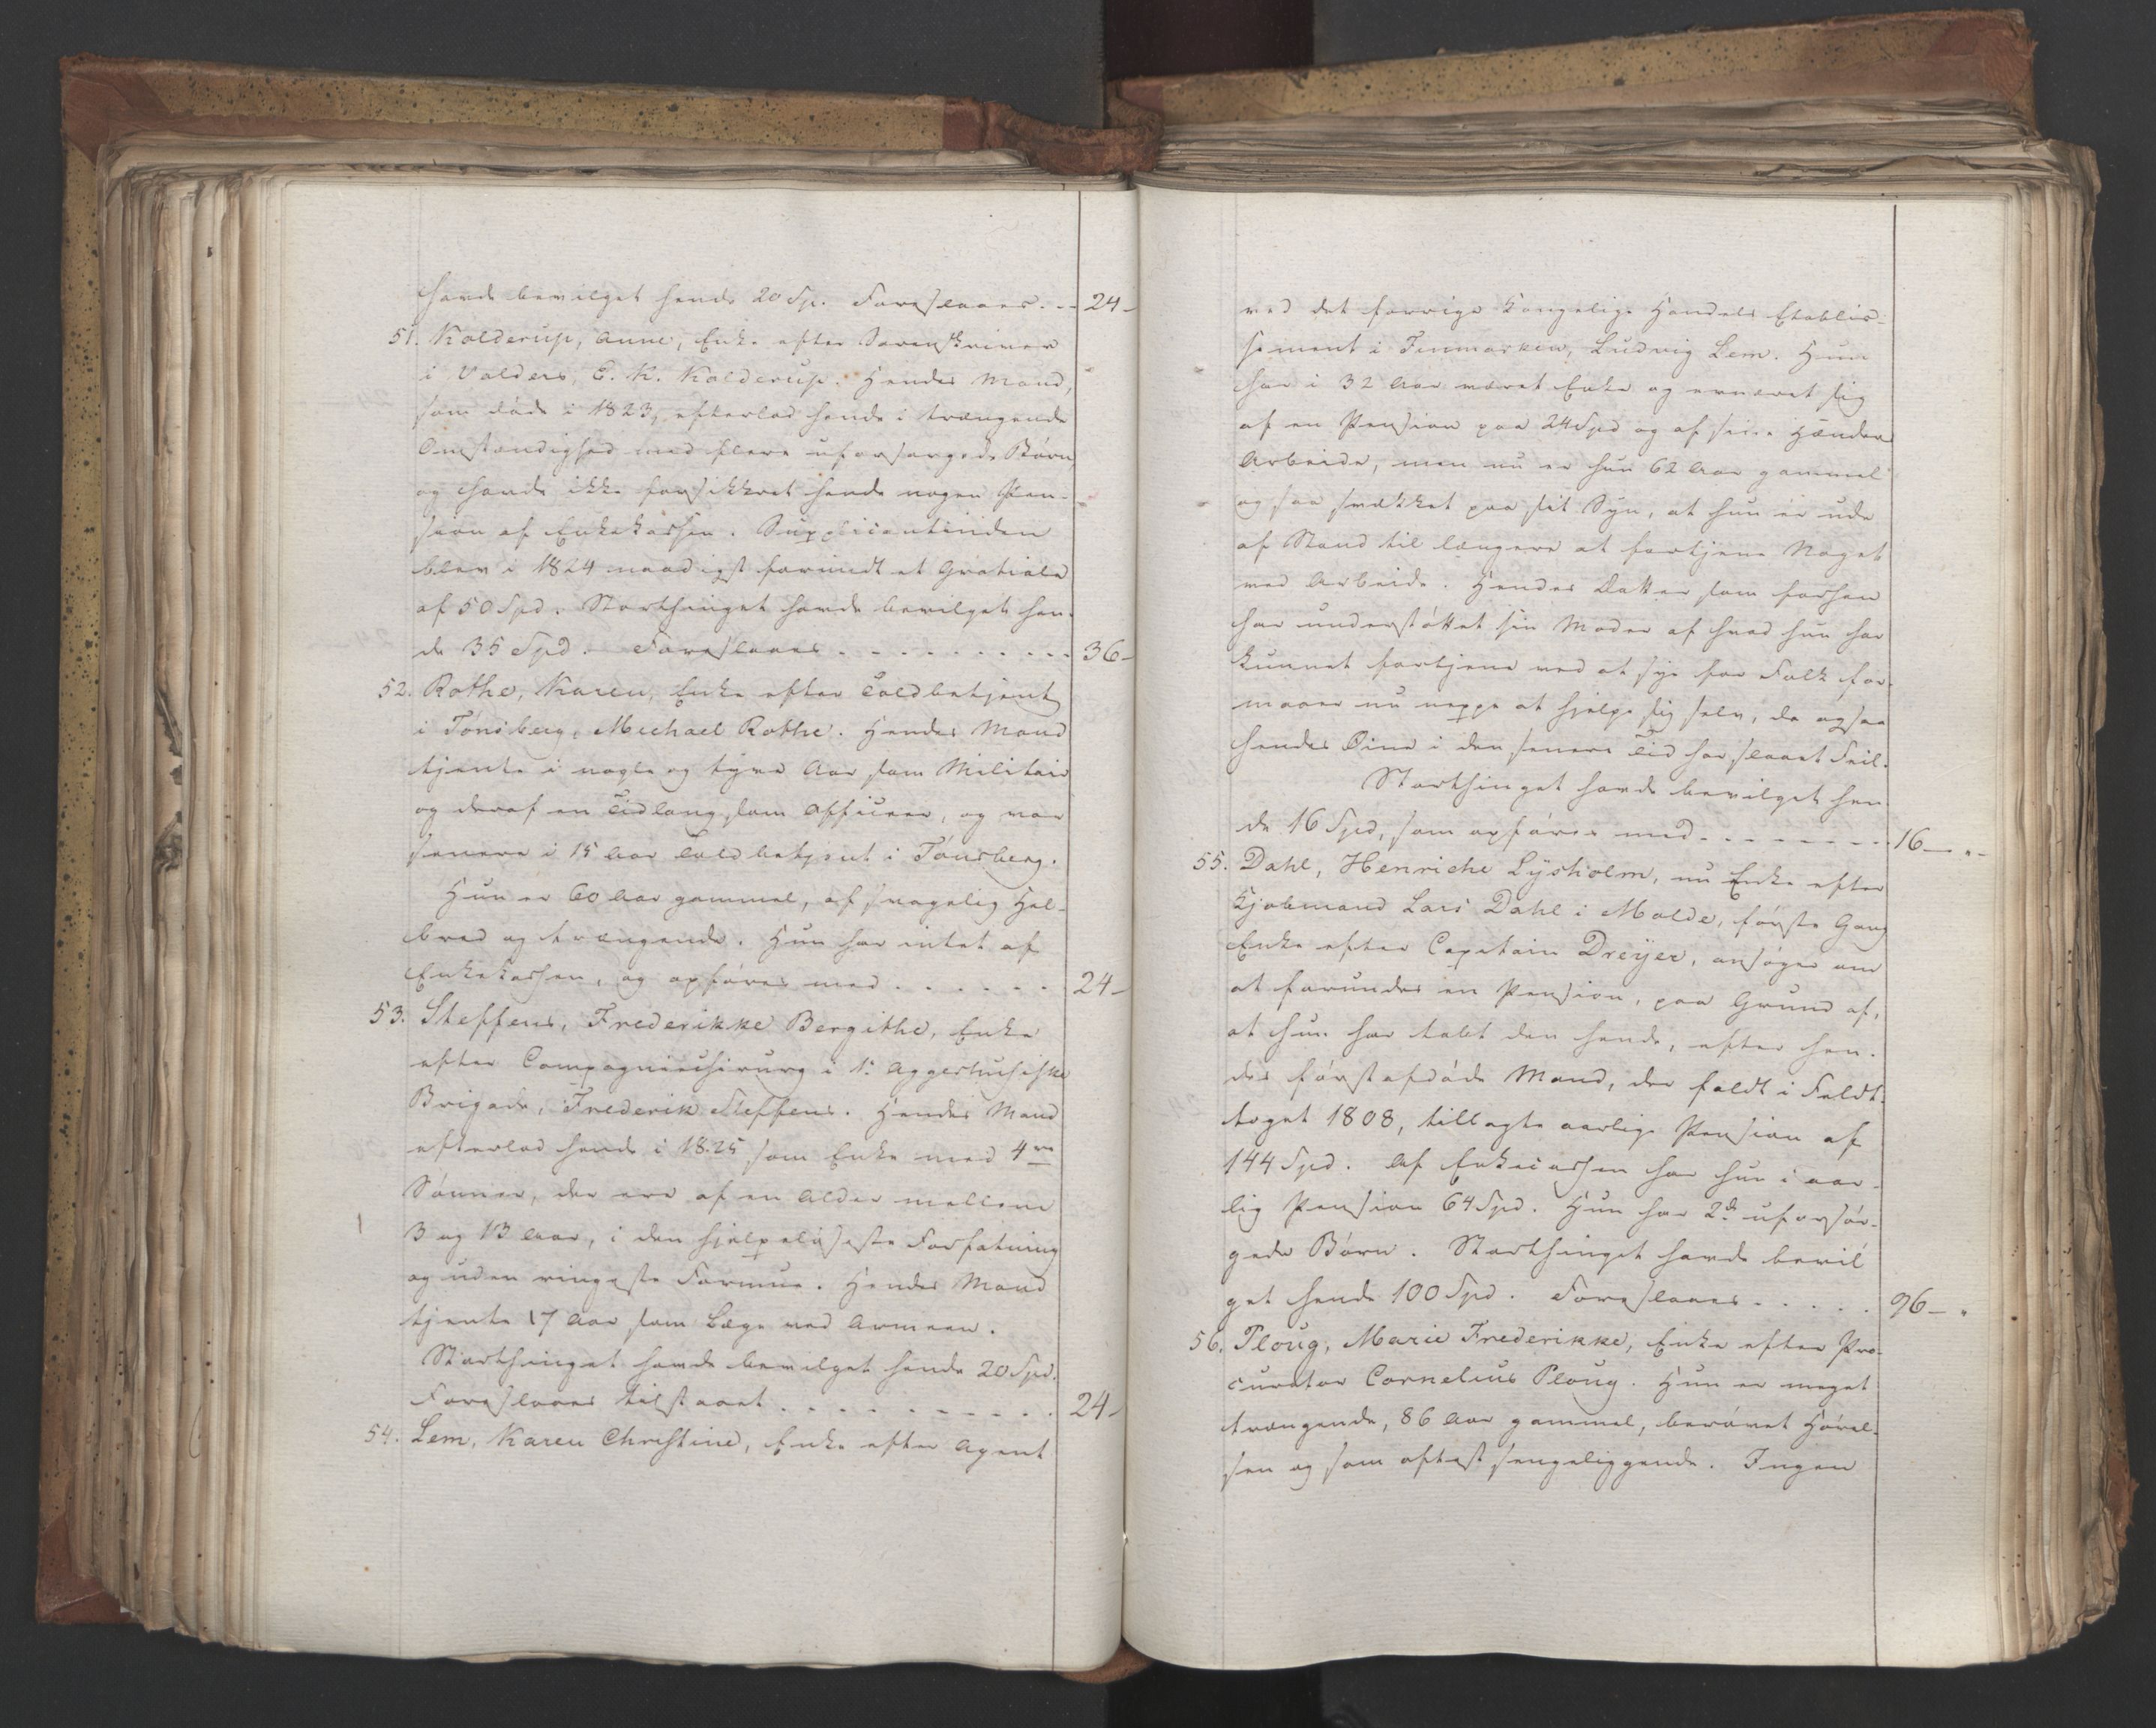 havde bevilget hende 20 Sp. Foreslaaes . . - 24 -
51. Kolderup, Anne, Enke efter Sorenskriver
i Valders, E. K. Kolderup. Hendes Mand,
som døde i 1823, efterlod hende i trængende
Omstændighed med flere uforsørgede Børn,
og havde ikke forsikkret hende nogen Pen-
sion af Enkekassen. Supplicantinden
blev i 1824 naadigst forundt et Gratiale
af 50 Spd. Storthinget havde bevilget hen-
de 35 Spd. Foreslaaes . - - - . . . . - - 36 -
52. Rothe, Karen, Enke efter Toldbetjent
i Tønsberg, Michael Rothe. Hendes Mand
tjente i nogle og tyve Aar som Militair
og deraf en Tidlang som Officeer, og var
senere i 15 Aar Toldbetjent i Tønsberg.
Hun er 60 Aar gammel, af svagelig Hel-
bred og trængende. Hun har intet af
Enkekassen, og opføres med . - . - - . 24 -
53. Steffens, Frederikke Bergithe, Enke
efter Compagniechirurg i 1: Aggershusiske
Brigade, Frederik Steffens. Hendes Mand
efterlod hende i 1825 som Enke med 4re
Sønner, der ere af en Alder mellem
3 og 13 Aar, i den hjelpeløseste Forfatning
og uden ringeste Formue. Hendes Mand
tjente 17 Aar som Læge ved Armeen.
Storthinget havde bevilget hende 20 Spd.
Foreslaaes tilstaaet . . - . . - - - . . 24 -
54. Lem, Karen Christine, Enke efter Agent
ved det forrige Kongelige Handels Etablis-
sement i Finmarken, Ludvig Lem. Hun
har i 32 Aar været Enke og ernæret sig
af en Pension paa 24 Spd og af sine Hænders
Arbeide, men nu er hun 62 Aar gammel
og saa svækket paa sit Syn, at hun er ude
af Stand til længere at fortjene Noget
ved Arbeide. Hendes Datter som forhen
har understøttet sin Moder af hvad hun har
kunnet fortjene ved at sye for Folk for-
maaer nu neppe at hjelpe sig selv, da ogsaa
hendes Øine i den senere Tid har slaaet Feil.
Storthinget havde bevilget hen
de 16 Spd, som opføres med - - - - - - - - 16 - " -
55. Dahl, Henriche Lysholm, nu Enke efter
Kjøbmand Lars Dahl i Molde, første Gang
Enke efter Capitain Dreyer, ansøger om
at forundes en Pension, paa Grund af,
at hun har tabt den hende, efter hen-
des førstafdøde Mand, der faldt i Feldt-
toget 1808, tillagte aarlige Pension af
144 Spd. Af Enkecassen har hun i aar-
lig Pension 64 Spd. Hun har 2de uforsør-
gede Børn. Storthinget havde bevil
get hende 100 Spd. Foreslaaes . - . . . 96 - "
56. Ploug, Marie Frederikke, Enke efter Pro-
curator Cornelius Ploug. Hun er meget
trængende, 86 Aar gammel, berøvet Hørel-
sen og som oftest sengeliggende. Ingen